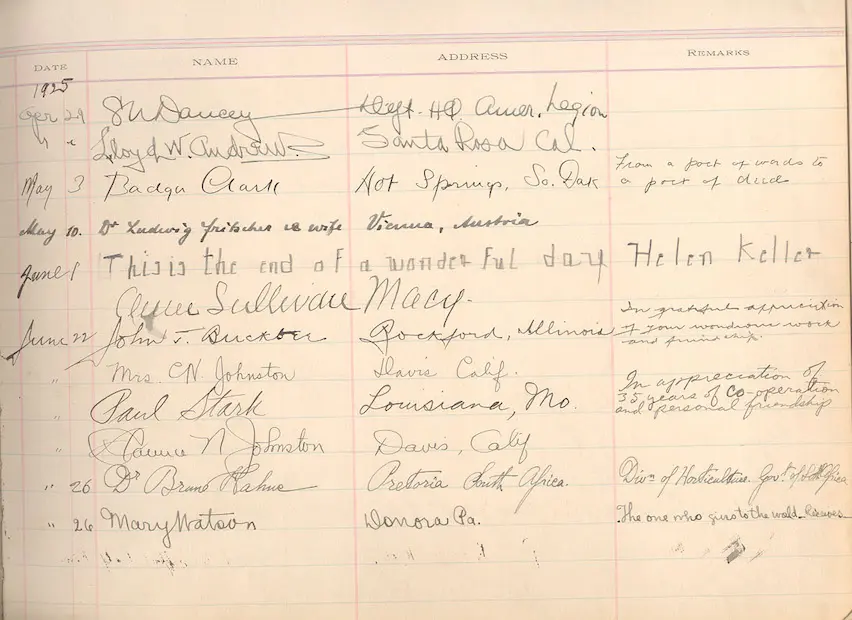 DATE NAME ADDRESS REMARKS
1925
Apr 29 Dept. HQ Amer. Legion
" " Lloyd W. Andrews. Santa Rosa Cal.
May 3 Badger Clark Hot Springs, So. Dak From a poet of words to
a poet of deed
May 10. Dr Ludwig & wife Vienna, Austria
June 1 This is the end of a wonderful day Helen Keller
Anne Sullivan Macy.
June 22 John T. Rockford, Illinois In grateful appreciation
of your wondrous work
and friendship.
" Mrs. C.N. Johnston Davis Calif.
" Paul Stark Louisiana, Mo. In appreciation of
35 years of Co-operation
and personal friendship
" Clarence N Johnston Davis, Calif
" 26 Dr Bruno Pretoria South Africa. Divn of Horticulture. Govt. of S. Africa
" 26 Mary Watson Donora Pa. The one who gives to the world